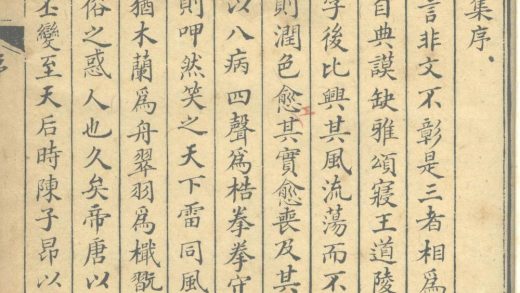 集序.
言非文不彰是三者相爲
自典謨缺雅頌寢王道陵
字後比興其風流蕩而不
則潤色愈工其實愈喪及其
以八病四聲爲梏拳拳守
則呷然笑之天下雷同風
猶木蘭爲舟翠羽爲檝翫
俗之惑人也久矣帝唐以
丕變至天后時陳子昂以